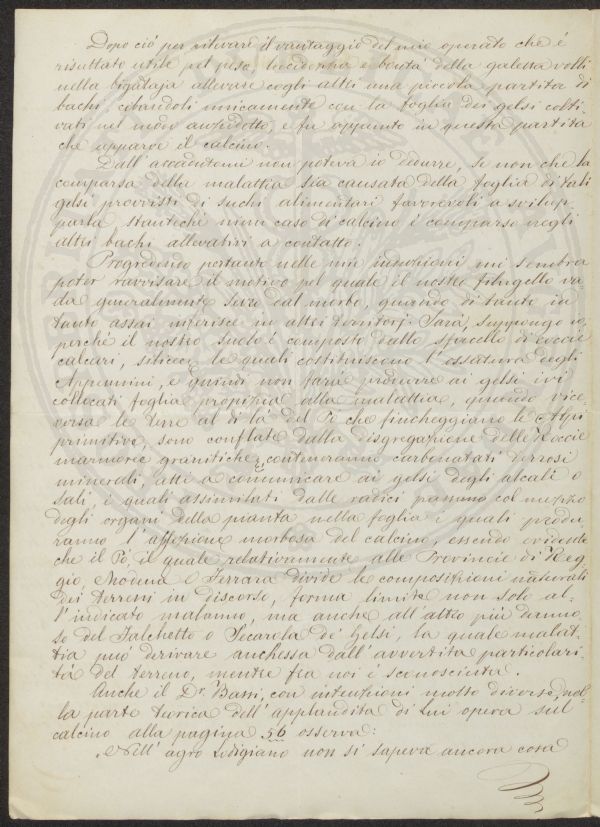 Dopo ciò per rilevare il vantaggio del mio operato che è
risultato utile pel peso, lucidezza e bontà della galetta volli
nella bigataja allevare cogli altri una piccola partita di
bachi cibandoli unicamente con la foglia dei gelsi colti-
vati nel modo anzidetto, e fu appunto in questa partita
che apparve il calcino.
Dall'accadutomi non poteva io dedurre, se non che la
comparsa della malattia sia causata della foglia di tali
gelsi provvisti di suchi alimentari favorevoli a svilup-
parla, stantechè niun caso di calcino è comparso negli
altri bachi allevativi a contatto.
Progredendo pertanto nelle mie induzioni mi sembra
poter ravvisare il motivo pel quale il nostro filugello va-
da generalmente scevro dal morbo, quando di tanto in
tanto assai inferisce in altri territorj. Sarà, suppongo io,
perchè il nostro suolo è composto dallo sfacello di roccie
calcari, silicee, le quali costituiscono l'ossatura degli
Appennini, e quindi non farà produrre ai gelsi ivi
collocati foglia propizia alla malattia, quando vice-
versa le terre al di la del Pò che fincheggiano le Alpi
primitive, sono conflate dalla disgregazione delle Roccie
marmoree granitiche, e conteneranno carbonati terrosi
minerali, atti a comunicare ai gelsi degli alcali o
sali i quali assimilati dalle radici passano col mezzo
degli organi della pianta nella foglia i quali produr-
ranno l'affezione morbosa del calcino, essendo evidente
che il Pò il quale relativamente alle Provincie di Reg-
gio, Modena e Ferrara divide le composizioni naturali
dei terreni in discorso, forma limite non solo al-
l'indicato malanno, ma anche all'altro più danno-
so del Falchetto o Secarola de' Gelsi, la quale malat-
tia può derivare anchessa dall'avvertita particolari-
tà del terreno, mentre fra noi è sconosciuta.
Anche il Dr. Bassi, con intenzioni molto diverse, nel-
la parte teorica dell'applaudita di Lui opera sul
calcino alla pagina 56 osserva:
"Nell'agro Lodigiano non si sapeva ancora cosa